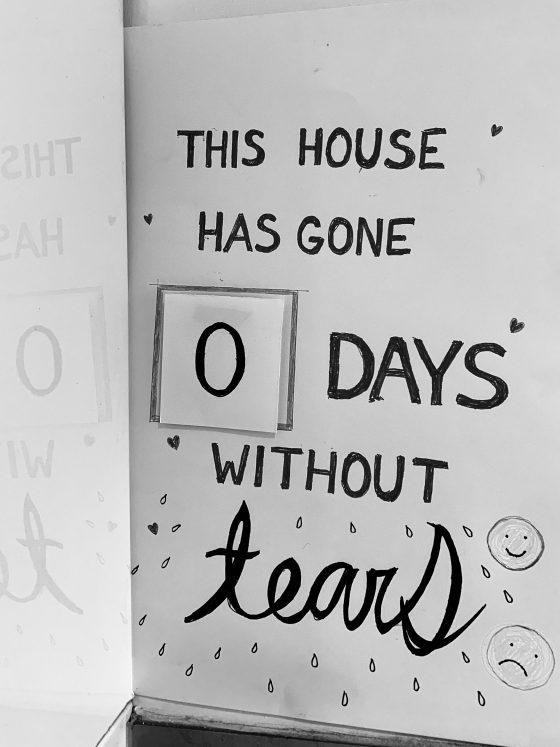 THIS HOUSE
HAS GONE
0 DAYS
WITHOUT
tears